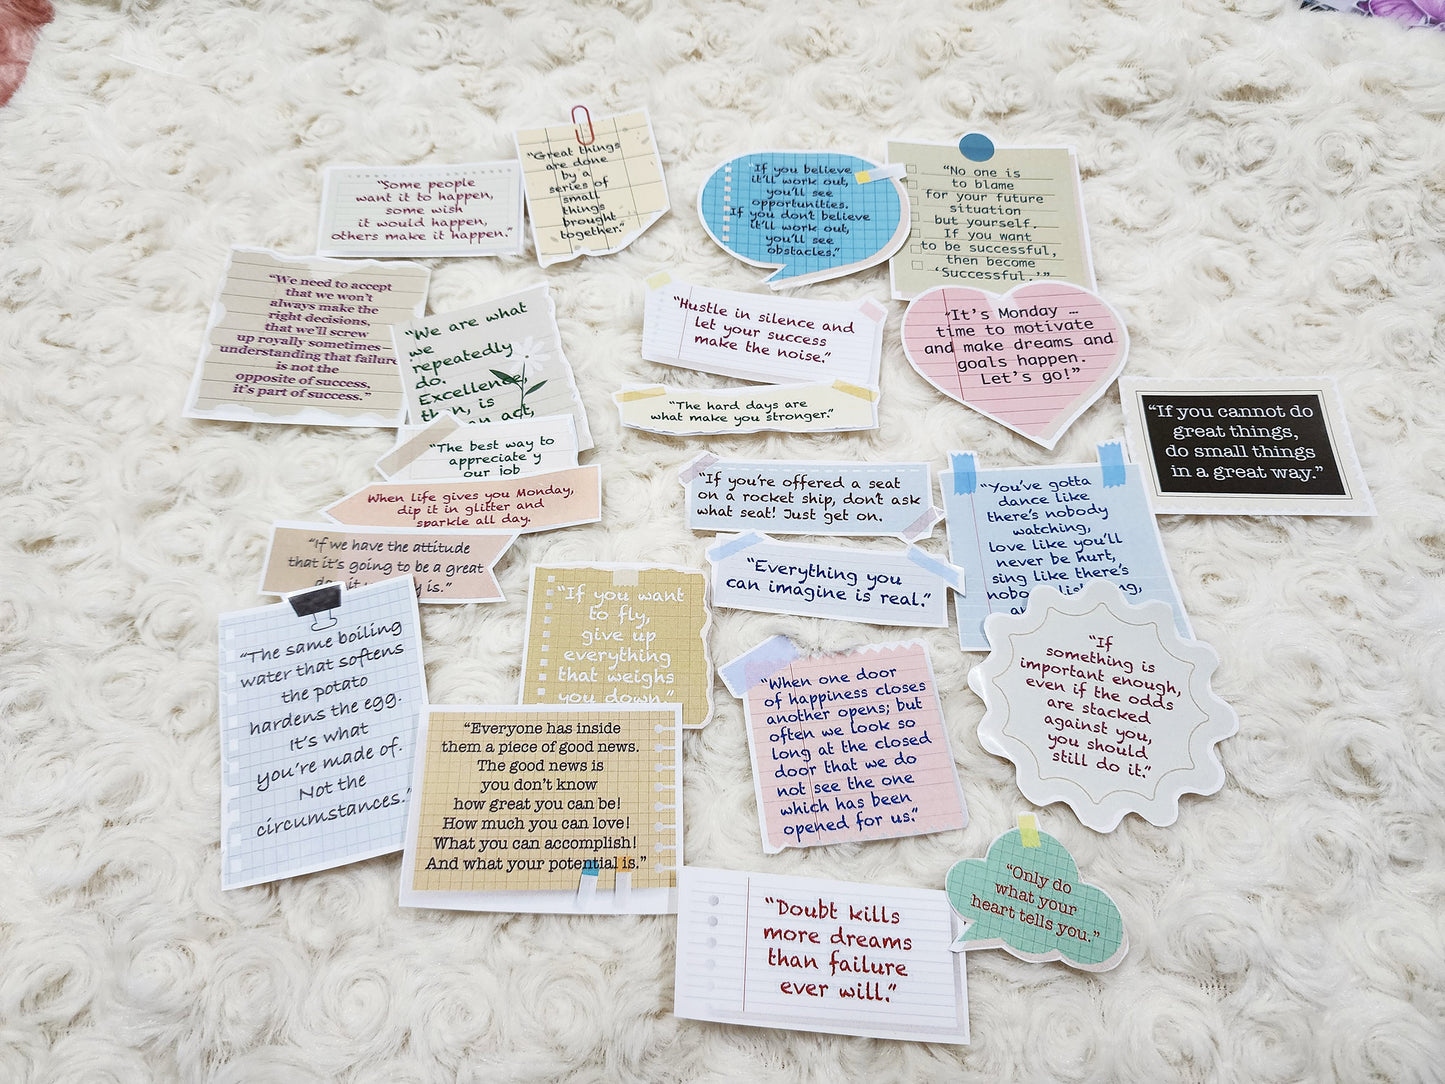 “Some people
want it to happen,
some wish
it would happen,
others make it happen.”
“Great things
are done
by a
series of
small
things
brought
together.”
“If you believe
it'll work out,
you'll see
opportunities.
If you don't believe
it'll work out,
you'll see
obstacles.”
“No one is
to blame
for your future
situation
but yourself.
If you want
to be successful,
then become
‘Successful.’”
“We need to accept
that we won't
always make the
right decisions,
that we'll screw
up royally sometimes –
understanding that failure
is not the
opposite of success,
it's part of success.”
“We are what
we
repeatedly
do.
Excellence,
then, is
act,
“Hustle in silence and
let your success
make the noise.”
“It's Monday …
time to motivate
and make dreams and
goals happen.
Let's go!”
“The hard days are
what make you stronger.”
“If you cannot do
great things,
do small things
in a great way.”
“The best way to
appreciate y
our job
When life gives you Monday,
dip it in glitter and
sparkle all day.
“If we have the attitude
that it's going to be a great
is.”
“If you're offered a seat
on a rocket ship, don't ask
what seat! Just get on.
“You've gotta
dance like
there's nobody
watching,
love like you'll
never be hurt,
sing like there's
“Everything you
can imagine is real.”
“If you want
to fly,
give up
everything
that weighs
you down”
“The same boiling
water that softens
the potato
hardens the egg.
It's what
you're made of.
Not the
circumstances.”
“Everyone has inside
them a piece of good news.
The good news is
you don't know
how great you can be!
How much you can love!
What you can accomplish!
And what your potential is.”
“When one door
of happiness closes
another opens; but
often we look so
long at the closed
door that we do
not see the one
which has been
opened for us.”
“If
something is
important enough,
even if the odds
are stacked
against you,
you should
still do it.”
“Only do
what your
heart tells you.”
“Doubt kills
more dreams
than failure
ever will.”